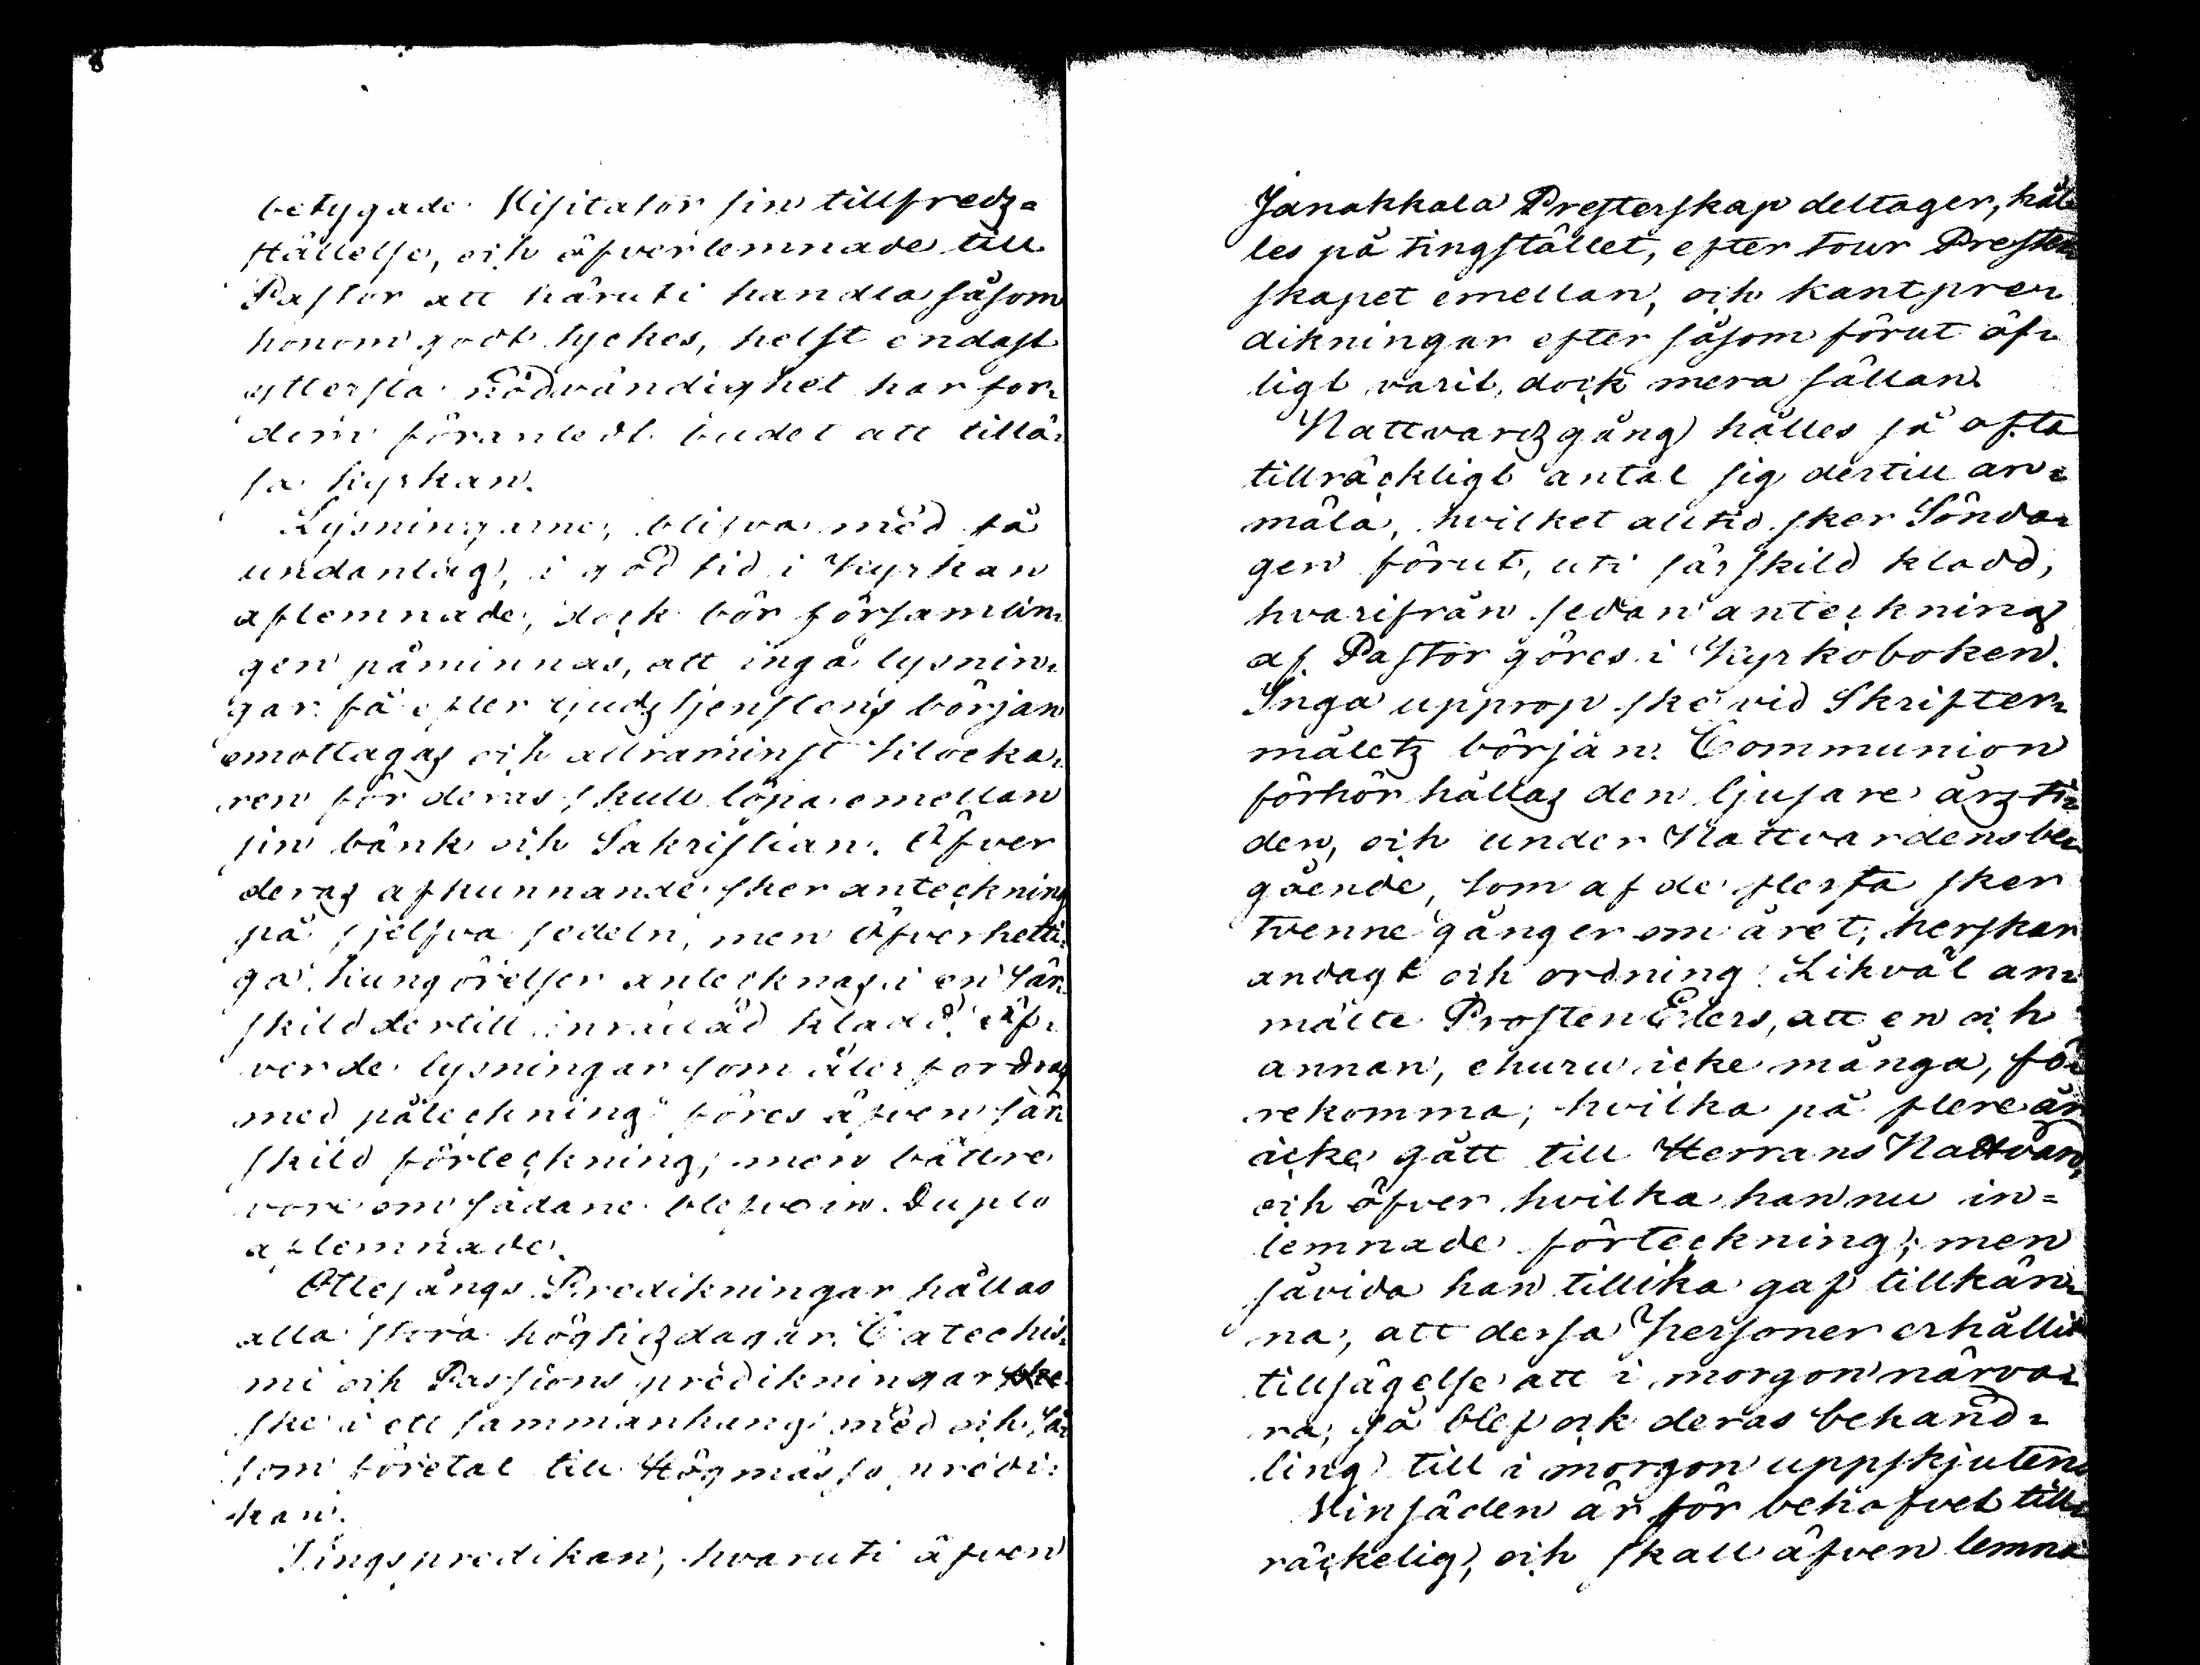 8
betygade Visitator sin tillfredz=
ställelse, och öfverlemnade till
Pastor att häruti handla såsom
honom godt tyckes, helst endast
yttersta nödvändighet har for=
dom föranledt budet att tillå=
sa kyrkan.
Lysningarne, blifva med få
undantag, i god tid i Kyrkan
aflemnade, dock bör församlin=
gen påminnas, att inga lysnin=
gar få efter Gudztjenstens början
emottagas och allraminst klocka=
ren för deras skull löpa emellan
sin bänk och Sakristian. Öfver
deras afkunnande sker anteckning
på sjelfva sedeln, men Öfverheteli=
ga kungörelser antecknas i en sär=
skild dertill inrättad kladd. Öf=
ver de lysningar som återfordras
med påteckning föres äfven sär=
skild förteckning, men bättre
vore om sådane blefve in Duplo
aflemnade.
Ottesångs Predikningar hållas
alla stora högtidzdagar. Catechis=
mi och Passions predikningar
ske i ett sammanhang med och så=
som företal till Högmässo predi=
kan.
Tingspredikan, hvaruti äfven
Janakkala Presterskap deltager, hål=
les på tingstället, efter tour Prester=
skapet emellan, och kantpre=
dikningar efter såsom förut öf=
ligt varit, dock mera sällan.
Nattvardzgång hålles så ofta
tillräckligt antal sig dertill an=
mäla, hvilket altid sker Sönda=
gen förut, uti särskild kladd,
hvarifrån sedan anteckning
af Pastor göres i Kyrkoboken.
Inga upprop ske vid Skrifter=
måletz början. Communion
förhör hållas den ljusare årzti=
den, och under Nattvardens be=
gående, som af de flesta sker
tvenne gånger om året, herskar
andagt och ordning. Likväl an=
mälte Prosten Elers, att en och
annan, ehuru icke många, fö=
rekomma, hvilka på flere år
icke gått till Herrans Nattvard,
och öfver hvilka han nu in=
lemnade förteckning; men
såvida han tillika gaf tillkän=
na, att dessa Personer erhållit
tillsägelse att i morgon närva=
ra, så blef ock deras behand=
ling till i morgon uppskjuten.
Vinsäden är för behofvet till=
räckelig, och skall äfven lemna